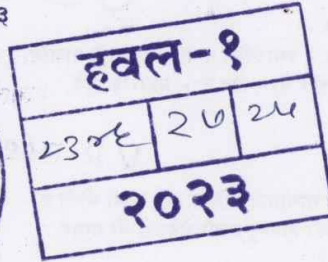 ३
हवल-१
२३४६ २७ २५
२०२३